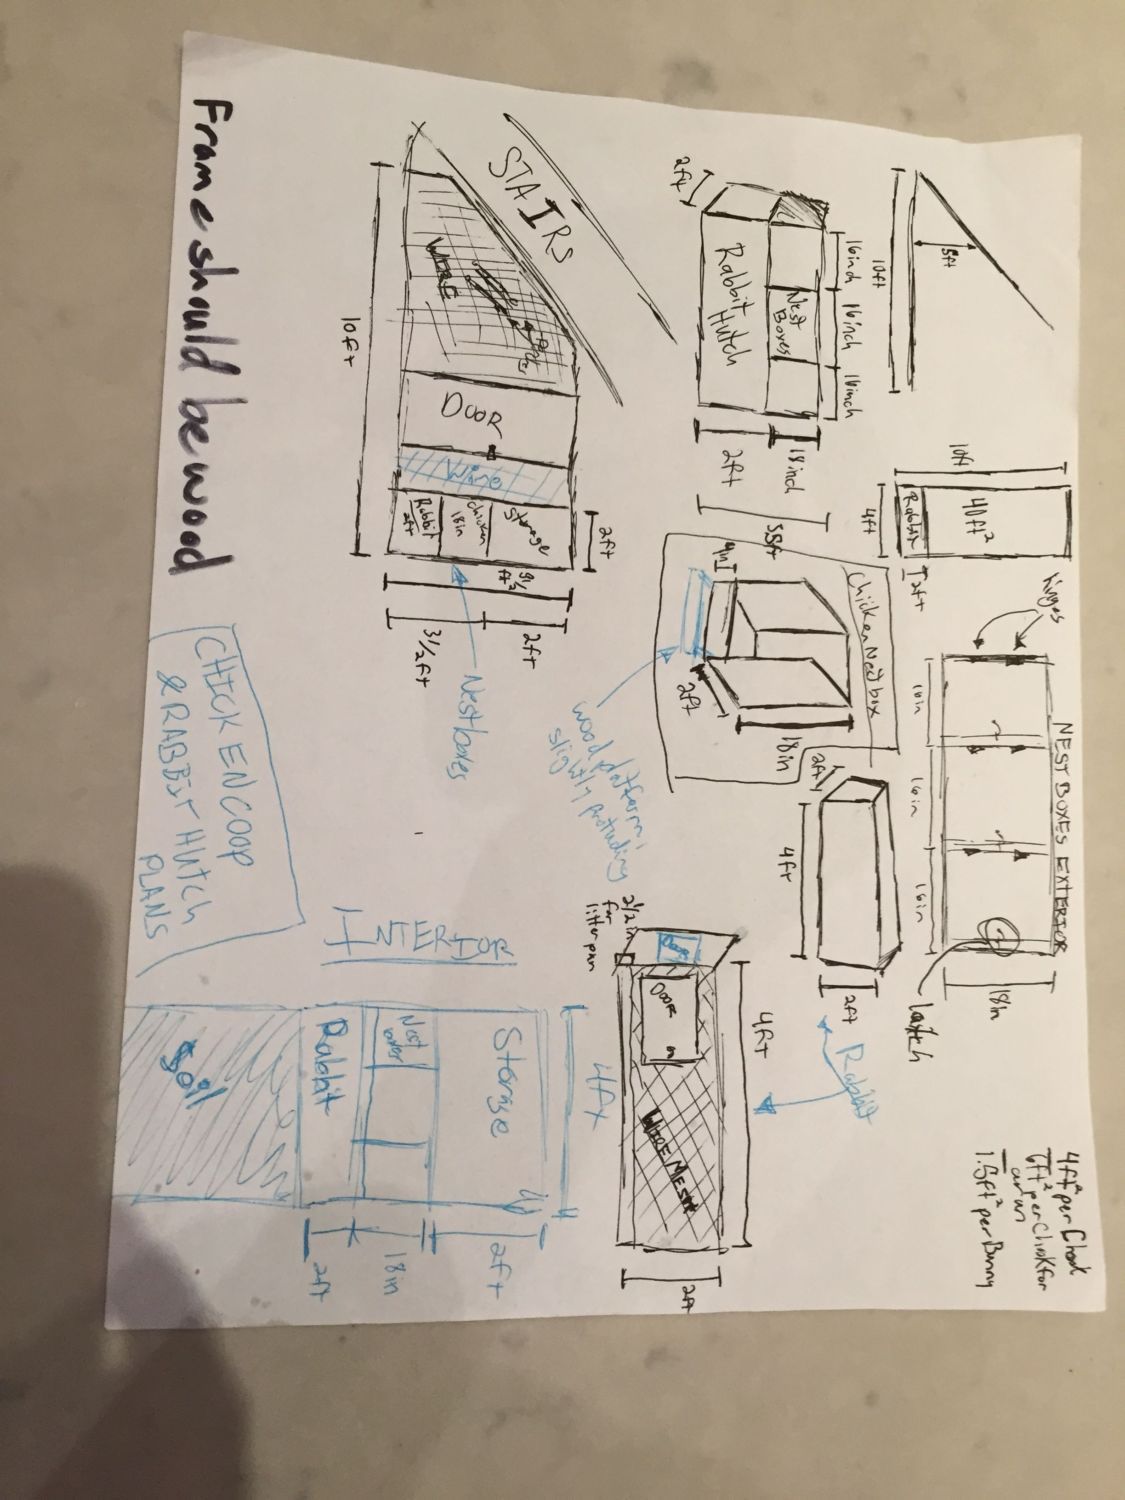 4ft² per Chook
6ft² per Chook for
a run
1.5ft² per Bunny
NEST BOXES EXTERIOR
hinges
16in
16in
16in
18in
latch
10ft
5ft
10ft
4ft
40ft²
Rabbit
2ft
2ft
16inch
16inch
16inch
Nest
Boxes
Rabbit
Hutch
18inch
2ft
3.5ft
Chicken Nest box
4in
2ft
18in
wood platform,
slightly protruding
2ft
4ft
2ft
Rabbit
2½in
for
litter pan
Door
DOOR
4ft
WIRE MESH
2ft
STAIRS
WIRE
DOOR
Wire
Storage
chicken
18in
Rabbit
2ft
2ft
10ft
5½
ft
2ft
3½ft
Nest boxes
INTERIOR
4ft
Storage
Nest
boxes
Rabbit
Soil
2ft
18in
2ft
CHICKEN COOP
& RABBIT HUTCH
PLANS
Frame should be wood